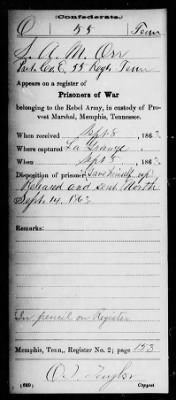 Confederate.
O 55 Tenn
S. A. M. Orr
Pvt. Co. E, 55 Regt. Tenn
Appears on a register of
Prisoners of War
belonging to the Rebel Army, in custody of Provost Marshal, Memphis, Tennessee.
When received Sept 8, 1863
Where captured La Grange.
When Sept 8, 1863
Disposition of prisoner Gave himself up
Released and sent North
Sept. 14, 1863
Remarks:
In pencil on Register
Memphis, Tenn., Register No. 2; page 153
(639) Copyist